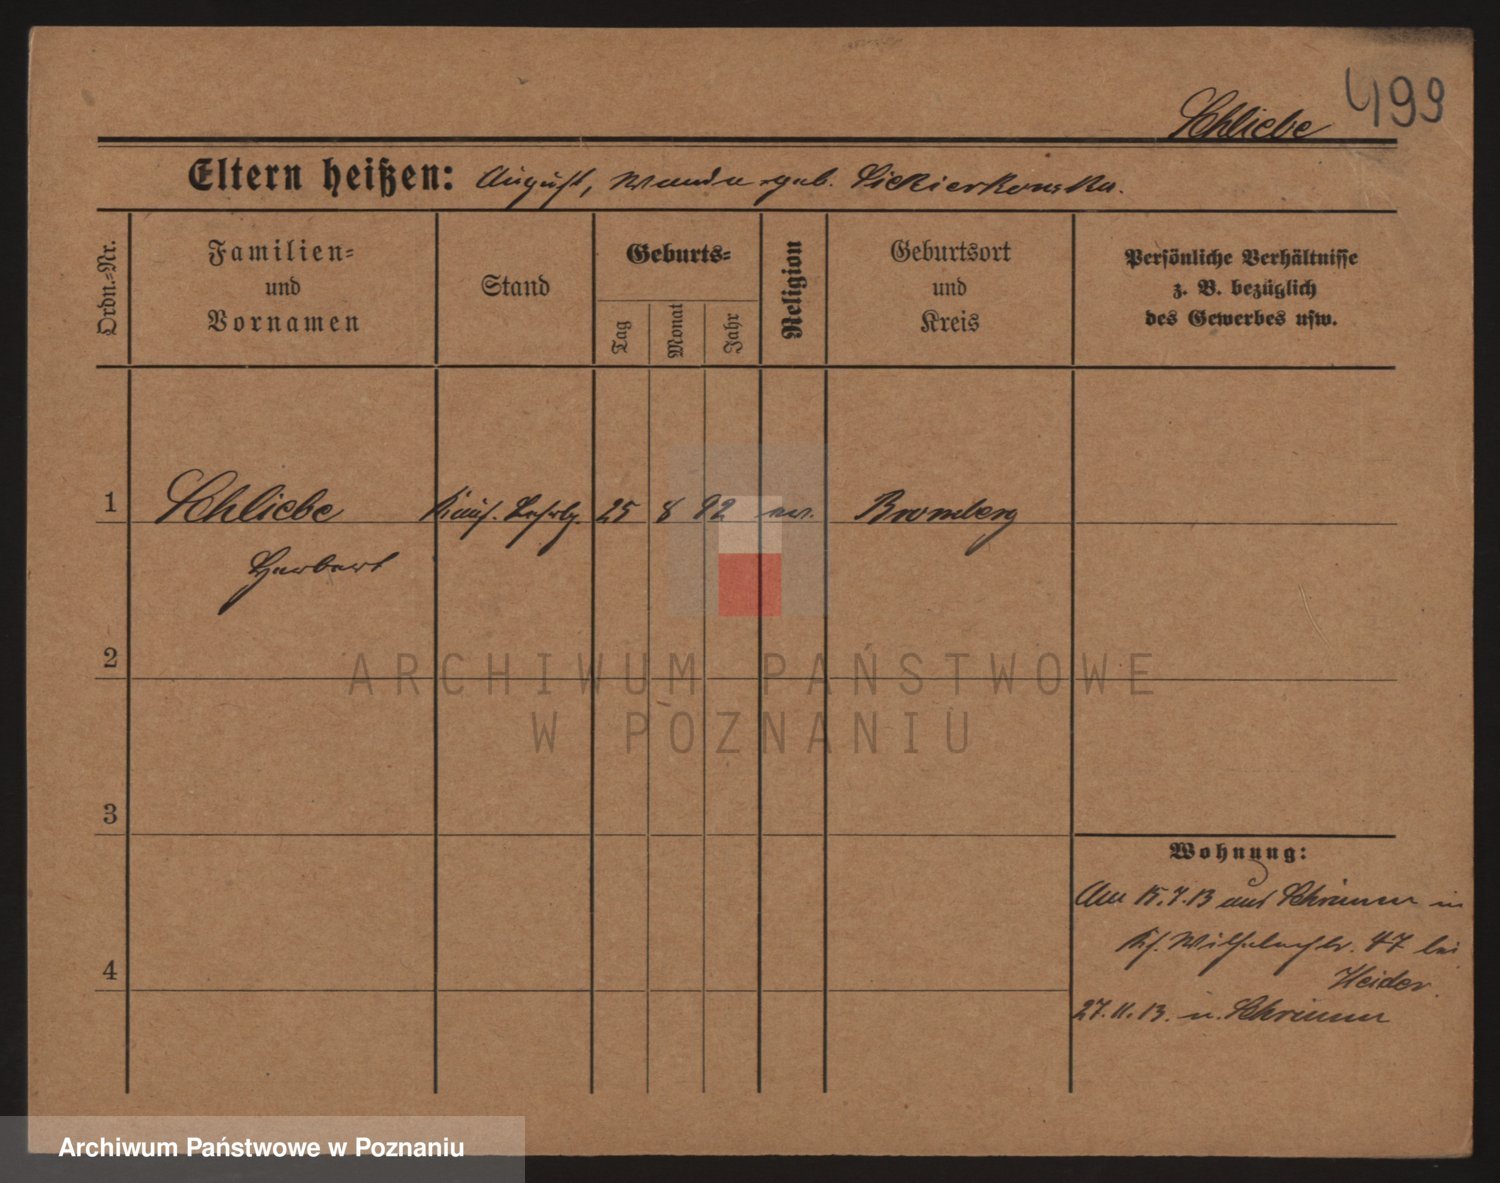 499
Schliebe
Eltern heißen: August, Wanda geb. Siekierkowska.
Ordn.-Nr.
Familien-
und
Vornamen
Stand
Geburts-
Tag
Monat
Jahr
Religion
Geburtsort
und
Kreis
Persönliche Verhältnisse
z. B. bezüglich
des Gewerbes usw.
1 Schliebe Kauf. Lehrlg. 25 8 92 ev. Bromberg
Herbert
2
3
4
Wohnung:
Am 15.7.13 aus Schrimm in
47 bei
Heider.
27.11.13. n. Schrimm
ARCHIWUM PAŃSTWOWE
W POZNANIU
Archiwum Państwowe w Poznaniu